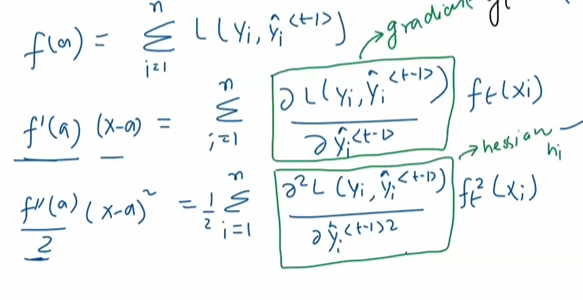 f(a) = n∑i=1 L(yi, ŷi<t-1>)
gradient gi
f'(a) (x-a) = n∑i=1 ∂L(yi, ŷi<t-1>) / ∂ŷi<t-1> ft(xi)
hessian hi
f''(a)/2 (x-a)² = 1/2 n∑i=1 ∂²L(yi, ŷi<t-1>) / ∂ŷi<t-1>2 ft²(xi)